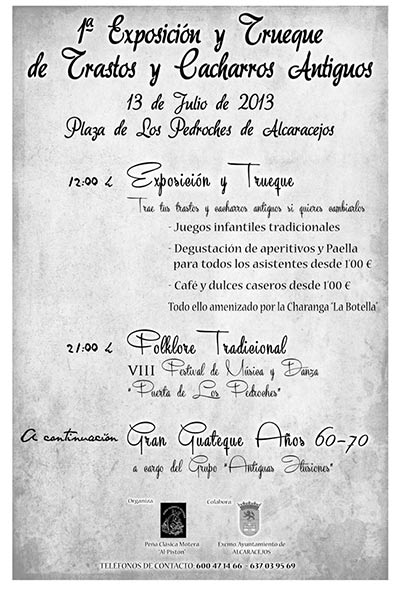 1ª Exposición y Trueque
de Trastos y Cacharros Antiguos
13 de Julio de 2013
Plaza de Los Pedroches de Alcaracejos
12:00 h Exposición y Trueque
Trae tus trastos y cacharros antiguos si quieres cambiarlos
- Juegos infantiles tradicionales
- Degustación de aperitivos y Paella
para todos los asistentes desde 1'00 €
- Café y dulces caseros desde 1'00 €
Todo ello amenizado por la Charanga "La Botella"
21:00 h Folklore Tradicional
VIII Festival de Música y Danza
"Puerta de Los Pedroches"
A continuación Gran Guateque Años 60-70
a cargo del Grupo "Antiguas Ilusiones"
Organiza Colabora
Peña Clásica Motera Excmo. Ayuntamiento de
"Al Pistón" ALCARACEJOS
TELÉFONOS DE CONTACTO: 600 47 14 66 - 637 03 95 69